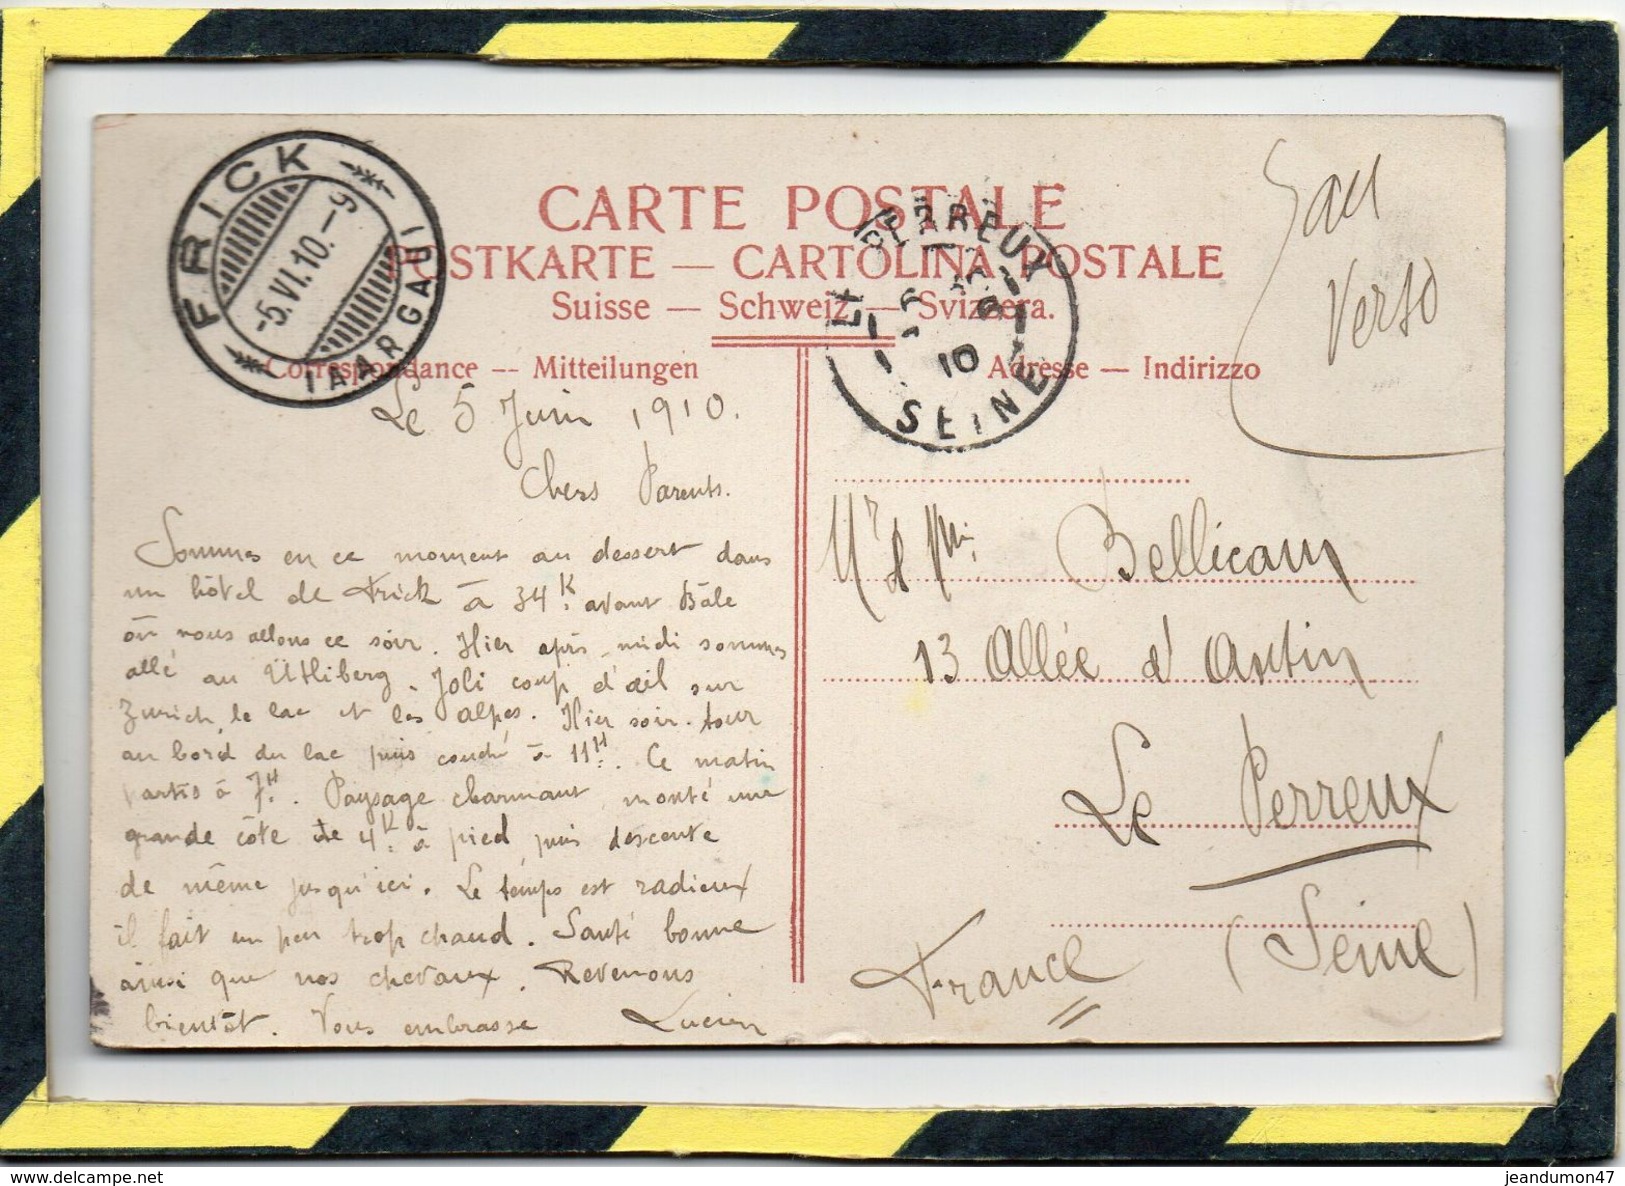 CARTE POSTALE
POSTKARTE — CARTOLINA POSTALE
Suisse — Schweiz — Svizzera.
Correspondance -- Mitteilungen
Adresse — Indirizzo
FRICK
-5.VI.10.-9
(AARGAU)
LE PERREUX
10
SEINE
Verso
Le 5 Juin 1910.
Chers Parents.
Sommes en ce moment au dessert dans
un hôtel de Frick à 34 K. avant Bâle
où nous allons ce soir. Hier après-midi sommes
allé au Utliberg. Joli coup d'œil sur
Zurich, le lac et les alpes. Hier soir tour
au bord du lac puis couché à 11H. Ce matin
partis à 7H. Paysage charmant, monté une
grande côte de 4K. à pied, puis descente
de même jusqu'ici. Le temps est radieux
il fait un peu trop chaud. Santé bonne
ainsi que nos chevaux. Revenons
bientôt. Vous embrasse Lucien
Mr & Mme Bellicam
13 Allée d'Antin
Le Perreux
(Seine)
France
jeandumon47